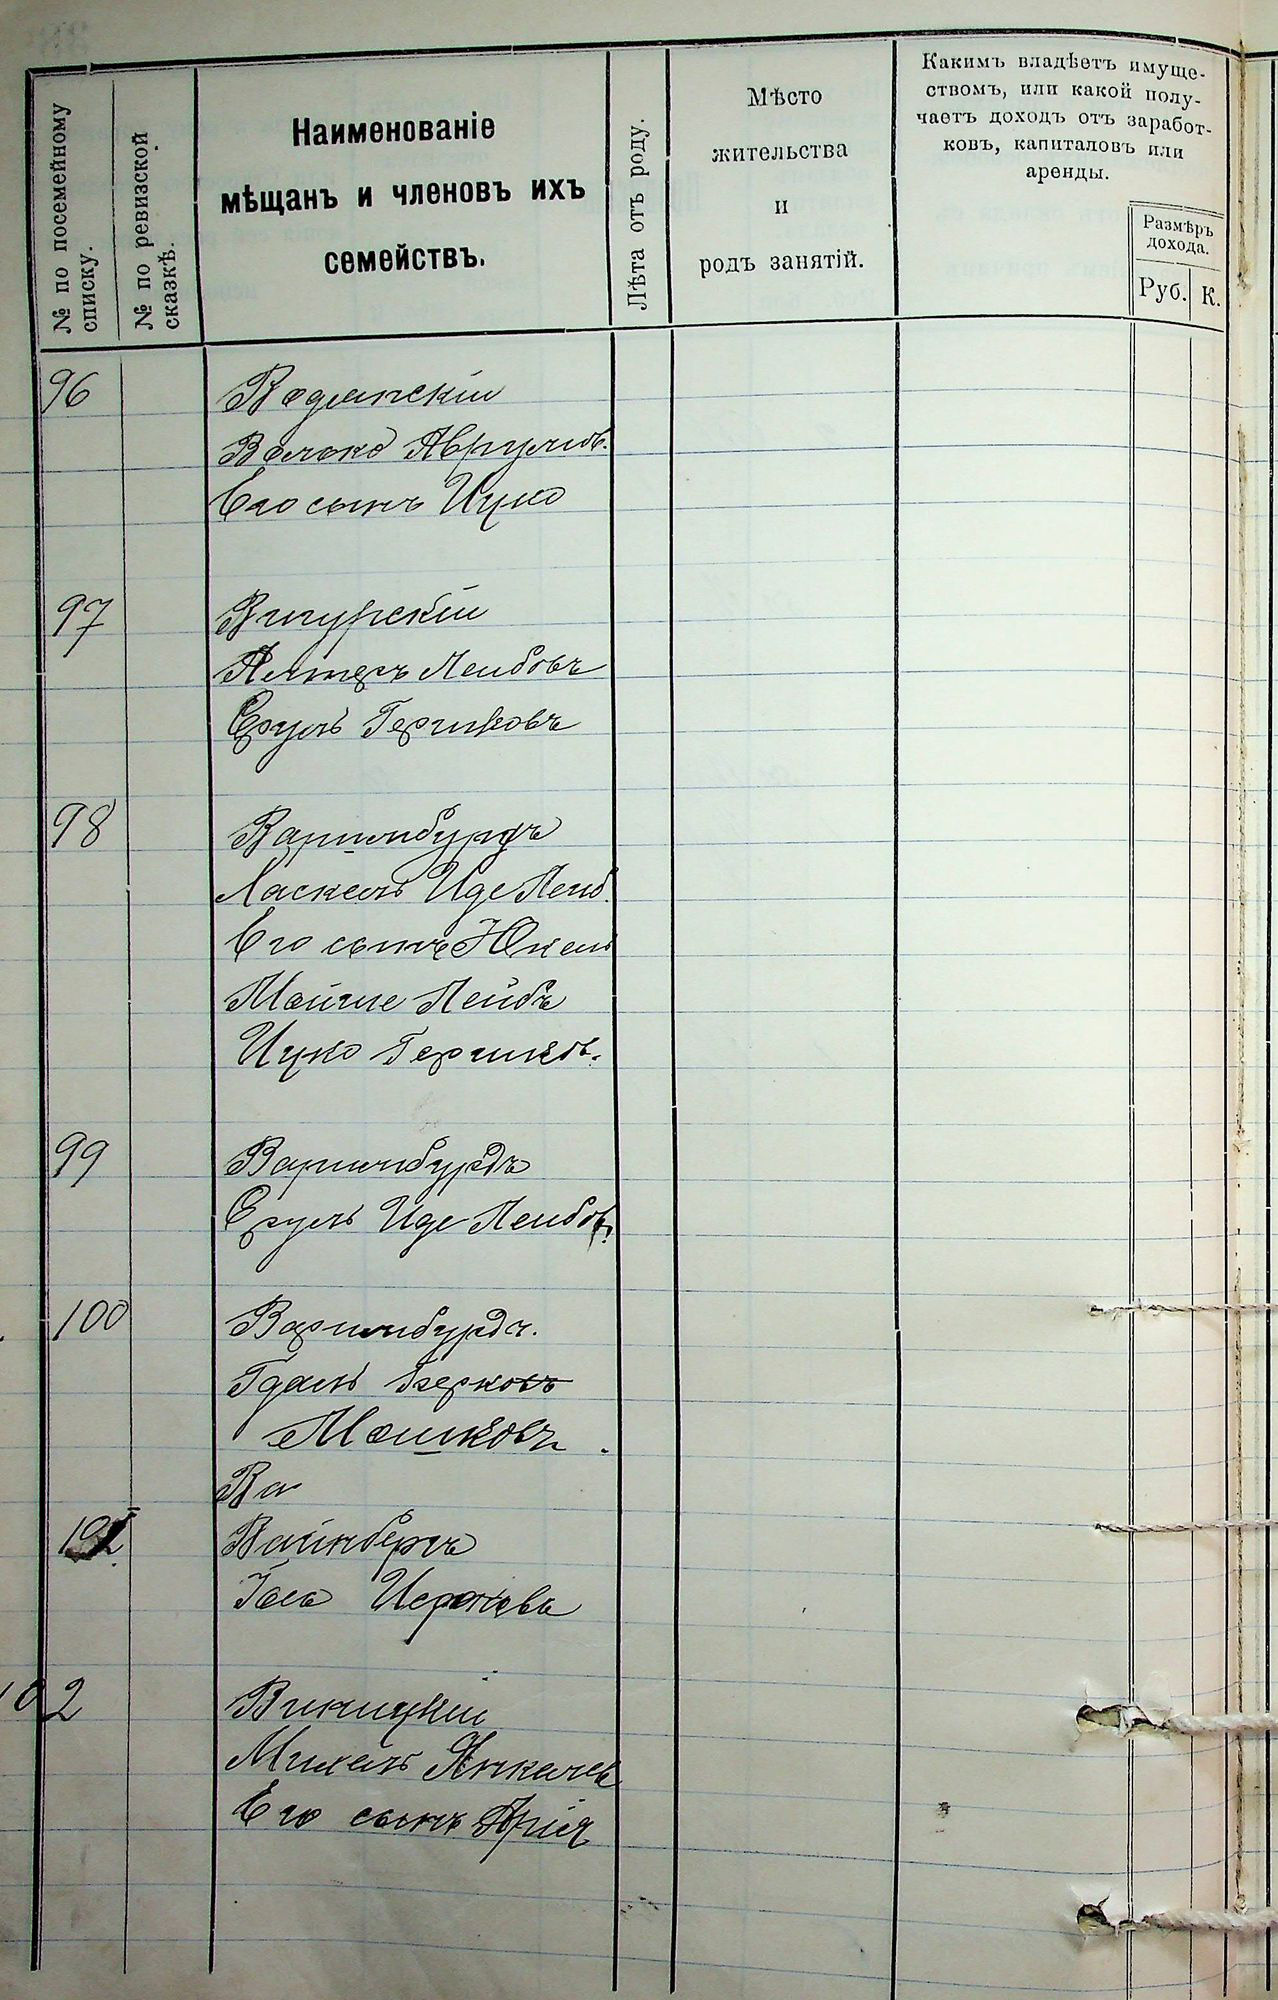 № по посемейному
списку.
№ по ревизской
сказкѣ.
Наименованіе
мѣщанъ и членовъ ихъ
семействъ.
Лѣта отъ роду.
Мѣсто
жительства
и
родъ занятій.
Какимъ владѣетъ имуще-
ствомъ, или какой полу-
чаетъ доходъ отъ заработ-
ковъ, капиталовъ или
аренды.
Размѣръ
дохода.
Руб. К.
96 Водянскій
Волько Аврумов.
Его сынъ Ицко
97
Алтеръ Лейбовъ
Сруль Гершковъ
98 Варшмбургъ
Хаскель Иде Лейб.
Его сынъ Юкель
Мойше Лейбъ
Ицко Гершков.
99 Варшмбургъ
Сруль Иде Лейбов.
100 Варшмбургъ.
Гдаль Берковъ
Мошковъ.
Ва
Вайнбергъ
Іось
102
Михель Янкелев
Его сынъ Арія